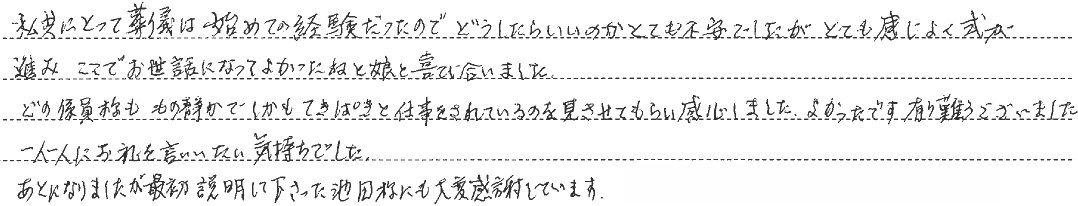 私共にとって葬儀は始めての経験だったので どうしたらいいのかとても不安でしたが とても感じよく式が
進み ここでお世話になってよかったねと娘と喜び合いました。
どの係員様も もの静かで しかもてきぱきと仕事をされているのを見させてもらい感心しました。よかったです 有り難うございました
一人一人にお礼を言いいたい気持ちでした。
あとになりましたが最初説明して下さった池田様にも大変感謝しています。